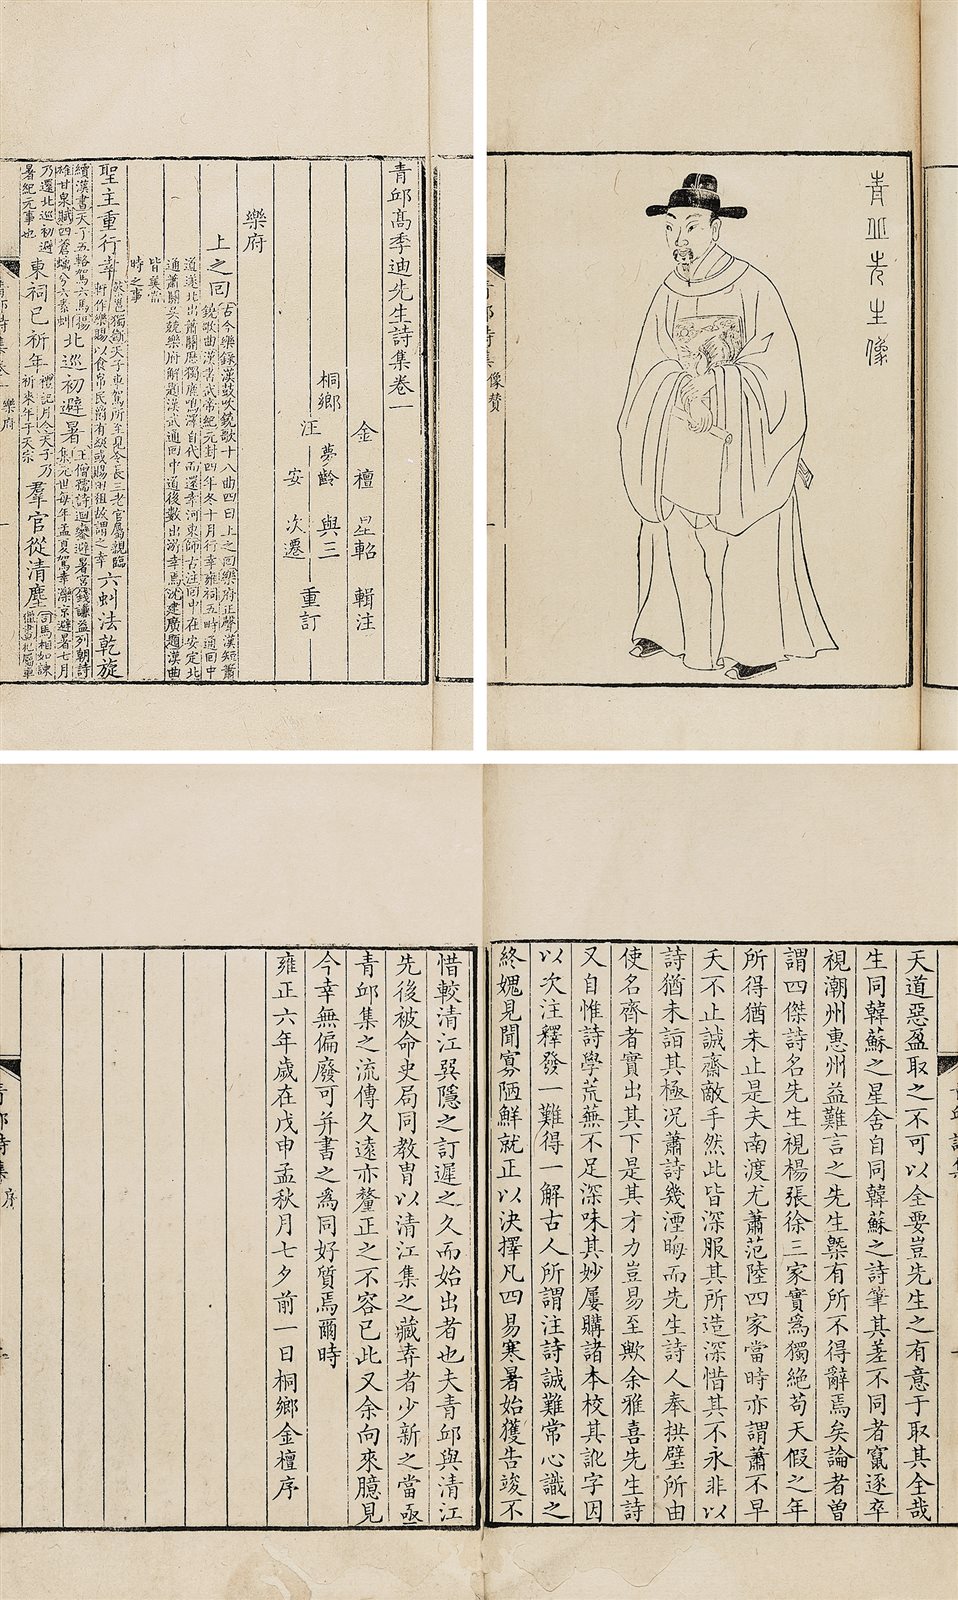 青丘先生像
青邱詩集
像贊
青邱高季迪先生詩集卷一
金檀星軺輯注
桐鄉
汪
夢齡與三
安次遷
重訂
樂府
上之回
古今樂錄漢鼓吹鐃歌十八曲四曰上之回樂府正聲漢短簫
鐃歌曲漢書武帝紀元封四年冬十月行幸雍祠五畤通回中
道遂北出蕭關歷獨鹿鳴澤自代而還幸河東師古注回中在安定北
通蕭關吳兢樂府解題漢武通回中道後數出游幸焉沈建廣題漢曲
皆美當
時之事
聖主重行幸
蔡邕獨斷天子車駕所至見令長三老官屬親臨
軒作樂賜以食帛民爵有級或賜田租故謂之幸
六虯法乾旋
續漢書天子五輅駕六馬揚
雄甘泉賦四蒼螭兮六素虯
北巡初避暑
王僧孺詩迴鑾避暑宮錢謙益列朝詩
集元世每年孟夏駕幸灤京避暑七月
乃還北巡初避
暑紀元事也
東祠已祈年
禮記月令天子乃
祈來年于天宗
羣官從清塵
司馬相如諫
獵書犯屬車
樂府
天道惡盈取之不可以全要豈先生之有意于取其全哉
生同韓蘇之星舍自同韓蘇之詩筆其差不同者竄逐卒
視潮州惠州益難言之先生槩有所不得辭焉矣論者曾
謂四傑詩名先生視楊張徐三家實爲獨絶苟天假之年
所得猶未止是夫南渡尤蕭范陸四家當時亦謂蕭不早
夭不止誠齋敵手然此皆深服其所造深惜其不永非以
詩猶未詣其極况蕭詩幾湮晦而先生詩人奉拱璧所由
使名齊者實出其下是其才力豈易至歟余雅喜先生詩
又自惟詩學荒蕪不足深味其妙屢購諸本校其訛字因
以次注釋發一難得一解古人所謂注詩誠難常心識之
終媿見聞寡陋鮮就正以決擇凡四易寒暑始獲告竣不
惜較清江巽隱之訂遲之久而始出者也夫青邱與清江
先後被命史局同教胄以清江集之藏弆者少新之當亟
青邱集之流傳久遠亦釐正之不容已此又余向來臆見
今幸無偏廢可并書之爲同好質焉爾時
雍正六年歲在戊申孟秋月七夕前一日桐鄉金檀序
青邱詩集
序